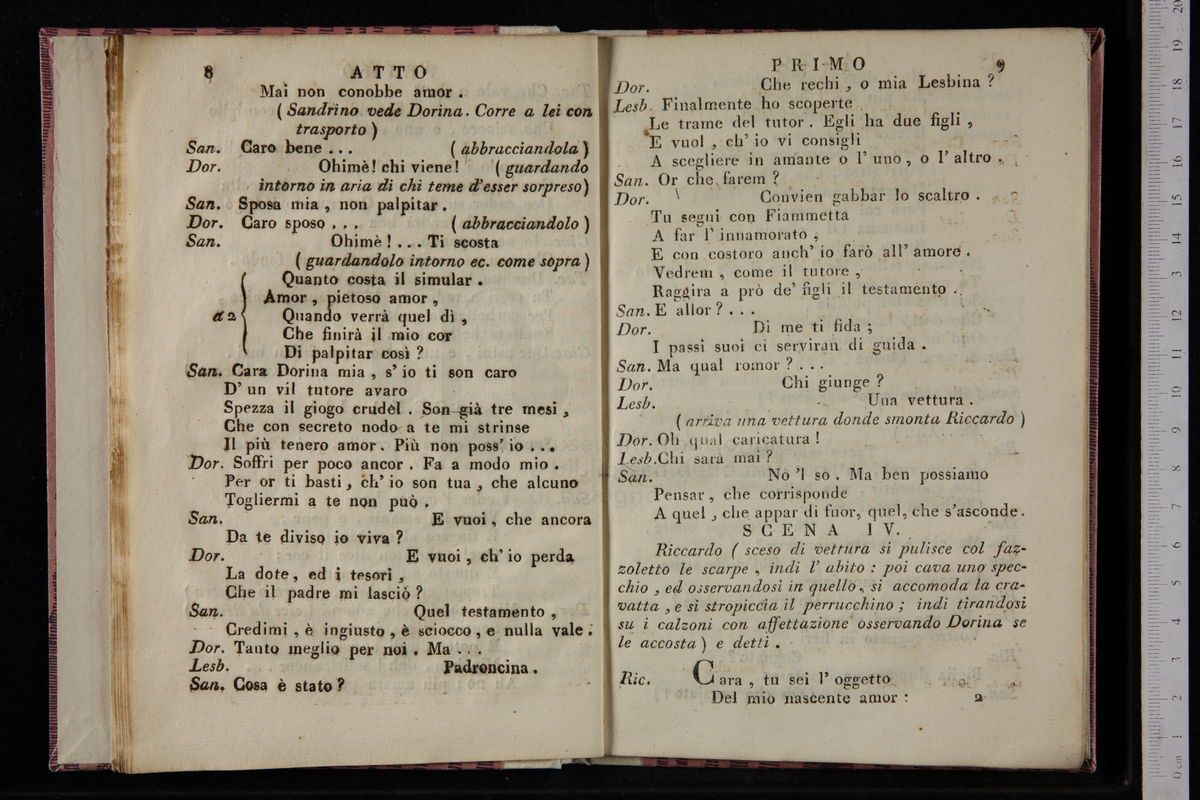 8 ATTO
Mai non conobbe amor .
( Sandrino vede Dorina. Corre a lei con
trasporto )
San. Caro bene . . . ( abbracciandola )
Dor. Ohimè! chi viene! ( guardando
intorno in aria di chi teme d'esser sorpreso)
San. Sposa mia , non palpitar .
Dor. Caro sposo . . . ( abbracciandolo )
San. Ohimè ! . . . Ti scosta
( guardandolo intorno ec. come sopra )
Quanto costa il simular .
Amor , pietoso amor ,
a 2 Quando verrà quel dì ,
Che finirà il mio cor
Di palpitar così ?
San. Cara Dorina mia , s' io ti son caro
D' un vil tutore avaro
Spezza il giogo crudel . Son già tre mesi ,
Che con secreto nodo a te mi strinse
Il più tenero amor. Più non poss' io . . .
Dor. Soffri per poco ancor . Fa a modo mio .
Per or ti basti , ch' io son tua , che alcuno
Togliermi a te non può .
San. E vuoi , che ancora
Da te diviso io viva ?
Dor. E vuoi , ch' io perda
La dote , ed i tesori ,
Che il padre mi lasciò ?
San. Quel testamento ,
Credimi , è ingiusto , è sciocco , e nulla vale .
Dor. Tanto meglio per noi . Ma . . .
Lesb. Padroncina .
San. Cosa è stato ?
PRIMO 9
Dor. Che rechi , o mia Lesbina ?
Lesb. Finalmente ho scoperte
Le trame del tutor . Egli ha due figli ,
E vuol , ch' io vi consigli
A scegliere in amante o l' uno , o l' altro .
San. Or che farem ?
Dor. Convien gabbar lo scaltro .
Tu segui con Fiammetta
A far l' innamorato ,
E con costoro anch' io farò all' amore .
Vedrem , come il tutore ,
Raggira a prò de' figli il testamento .
San. E allor ? . . .
Dor. Di me ti fida ;
I passi suoi ci serviran di guida .
San. Ma qual romor ? . . .
Dor. Chi giunge ?
Lesb. Una vettura .
( arriva una vettura donde smonta Riccardo )
Dor. Oh qual caricatura !
Lesb. Chi sarà mai ?
San. No 'l so . Ma ben possiamo
Pensar , che corrisponde
A quel , che appar di fuor, quel, che s'asconde.
SCENA IV.
Riccardo ( sceso di vettura si pulisce col faz-
zoletto le scarpe , indi l' abito : poi cava uno spec-
chio , ed osservandosi in quello , si accomoda la cra-
vatta , e si stropiccia il perrucchino ; indi tirandosi
su i calzoni con affettazione osservando Dorina se
le accosta ) e detti .
Ric. Cara , tu sei l' oggetto
Del mio nascente amor :
2